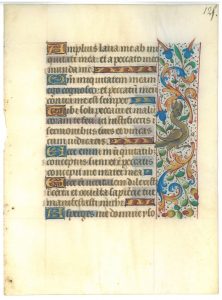 Amplius lava me ab ini
quitati mea: et a peccato meo
munda me
Quoniam iniquitatem meam
ego cognosco: et peccatum meum
contra me est semper
Tibi soli peccavi et malum
coram te feci: ut iustificeris in
sermonibus tuis et vincas
cum iudicaris
Ecce enim in iniquitatibus
conceptus sum: et in peccatis
concepit me mater mea
Ecce enim veritatem dilexisti
incerta et occulta sapientie tue
manifestasti michi
Asperges me domine yso